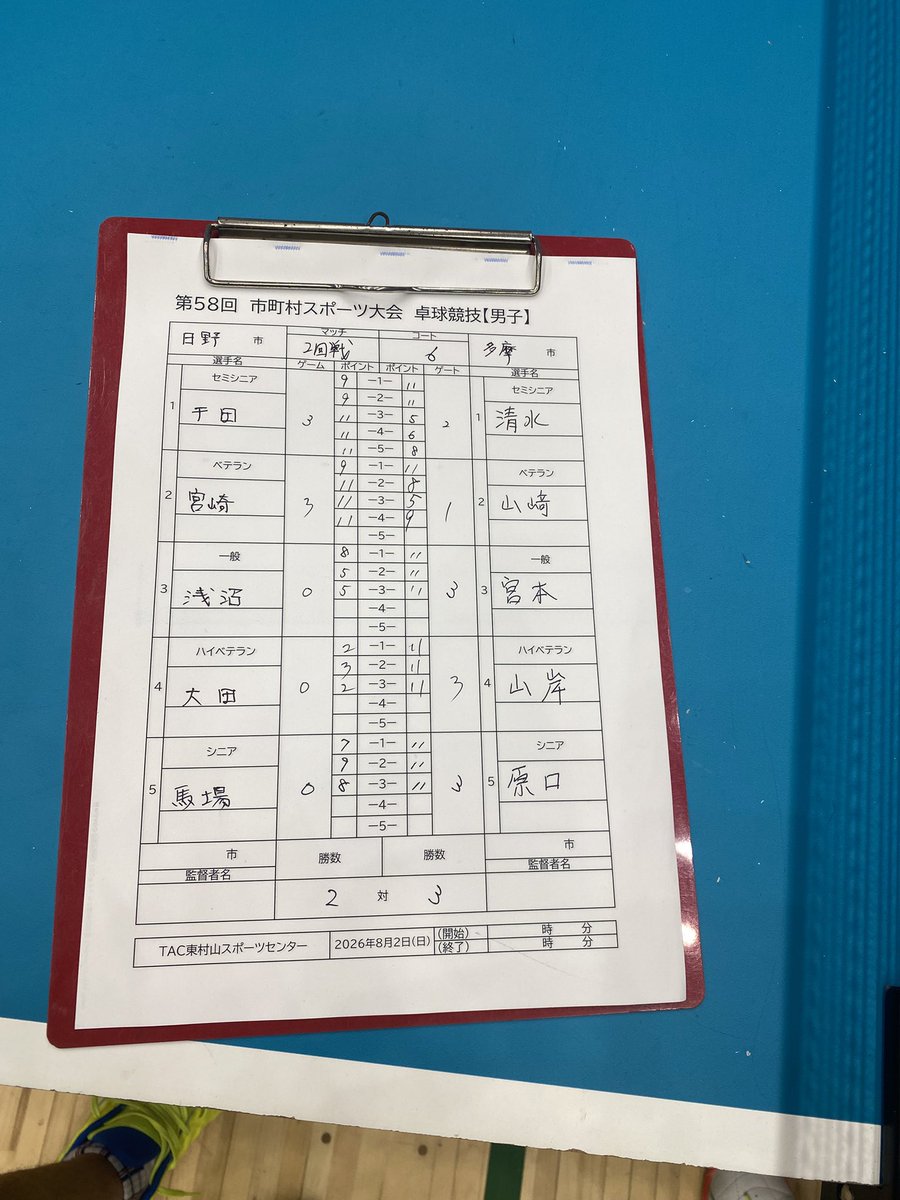 第58回 市町村スポーツ大会 卓球競技【男子】
日野 市 マッチ 2回戦 コート 6 多摩 市
選手名 ゲーム ポイント ポイント ゲート 選手名
セミシニア 9 －1－ 11 セミシニア
9 －2－ 11
1 干田 3 11 －3－ 5 2 1 清水
11 －4－ 6
11 －5－ 8
ベテラン 9 －1－ 11 ベテラン
11 －2－ 8
2 宮崎 3 11 －3－ 5 1 2 山崎
11 －4－ 9
－5－
一般 8 －1－ 11 一般
5 －2－ 11
3 浅沼 0 5 －3－ 11 3 3 宮本
－4－
－5－
ハイベテラン 2 －1－ 11 ハイベテラン
3 －2－ 11
4 大田 0 2 －3－ 11 3 4 山岸
－4－
－5－
シニア 7 －1－ 11 シニア
9 －2－ 11
5 馬場 0 8 －3－ 11 3 5 原口
－4－
－5－
市 勝数 勝数 市
監督者名 監督者名
2 対 3
TAC東村山スポーツセンター 2026年8月2日(日) (開始) 時 分
(終了) 時 分